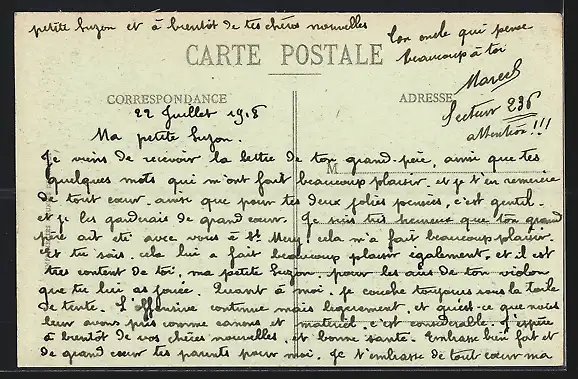 petite Suzon et à bientôt de tes chères nouvelles
Ton oncle qui pense
beaucoup à toi
Marcel
CARTE POSTALE
CORRESPONDANCE
ADRESSE
Secteur 236
attention!!!
22 Juillet 1918
Ma petite Suzon.
Je viens de recevoir la lettre de ton grand-père, ainsi que tes
M
quelques mots qui m'ont fait beaucoup plaisir. et je t'en remercie
de tout cœur. ainsi que pour tes deux jolies pensées, c'est gentil.
et je les garderais de grand cœur. Je suis très heureux que ton grand
père ait été avec vous à St. cela m'a fait beaucoup plaisir.
et tu sais. cela lui a fait beaucoup plaisir également. et il est
très content de toi. ma petite Suzon. pour les airs de ton violon
que tu lui as jouée. Quant à moi. je couche toujours sous la toile
de tente. L'offensive continue mais et qu'est-ce que nous
leur avons pris comme canons et matériel. c'est considérable. J'espère
à bientôt de vos chères nouvelles. et bonne santé. Embrasse bien fort et
de grand cœur tes parents pour moi. Je t'embrasse de tout cœur ma